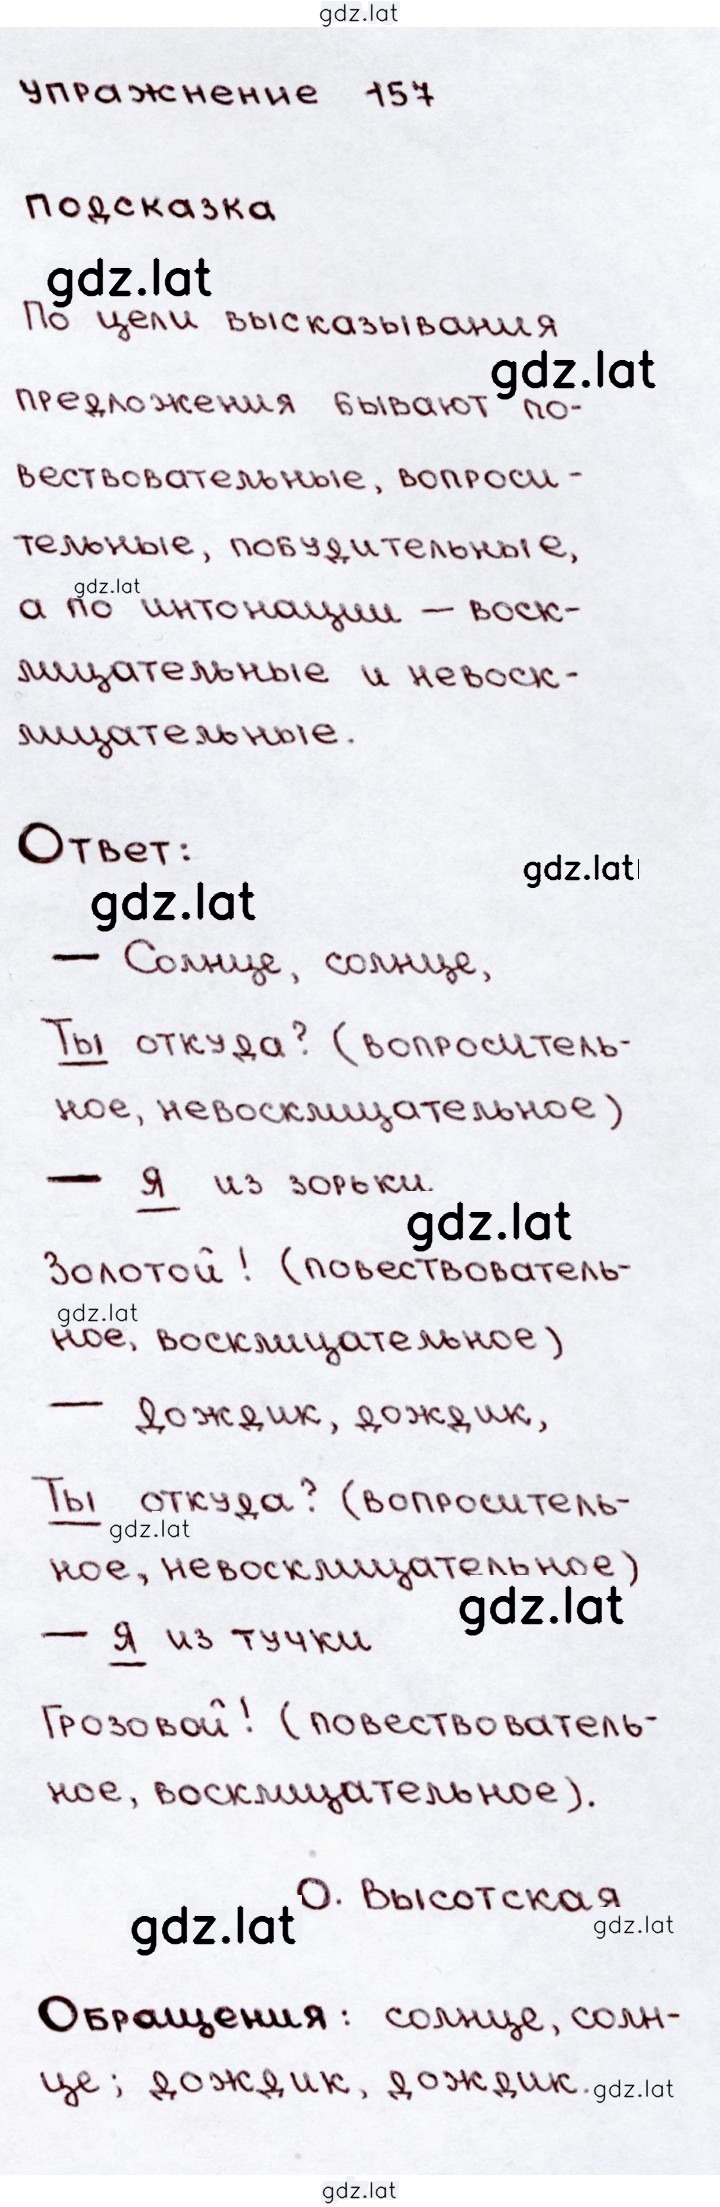 gdz.lat
упражнение 157
подсказка
gdz.lat
По цели высказывания
gdz.lat
предложения бывают по-
вествовательные, вопроси-
тельные, побудительные,
gdz.lat
а по интонации – воск-
лицательные и невоск-
лицательные.
Ответ:
gdz.lat
gdz.lat
— Солнце, солнце,
Ты откуда? (вопроситель-
ное, невосклицательное)
— Я из зорьки
gdz.lat
Золотой! (повествователь-
gdz.lat
ное, восклицательное)
— Дождик, дождик,
Ты откуда? (вопроситель-
gdz.lat
ное, невосклицательное)
gdz.lat
— Я из тучки
Грозовой! (повествователь-
ное, восклицательное).
О. Высотская
gdz.lat
gdz.lat
Обращения: солнце, солн-
це; дождик, дождик.
gdz.lat
gdz.lat